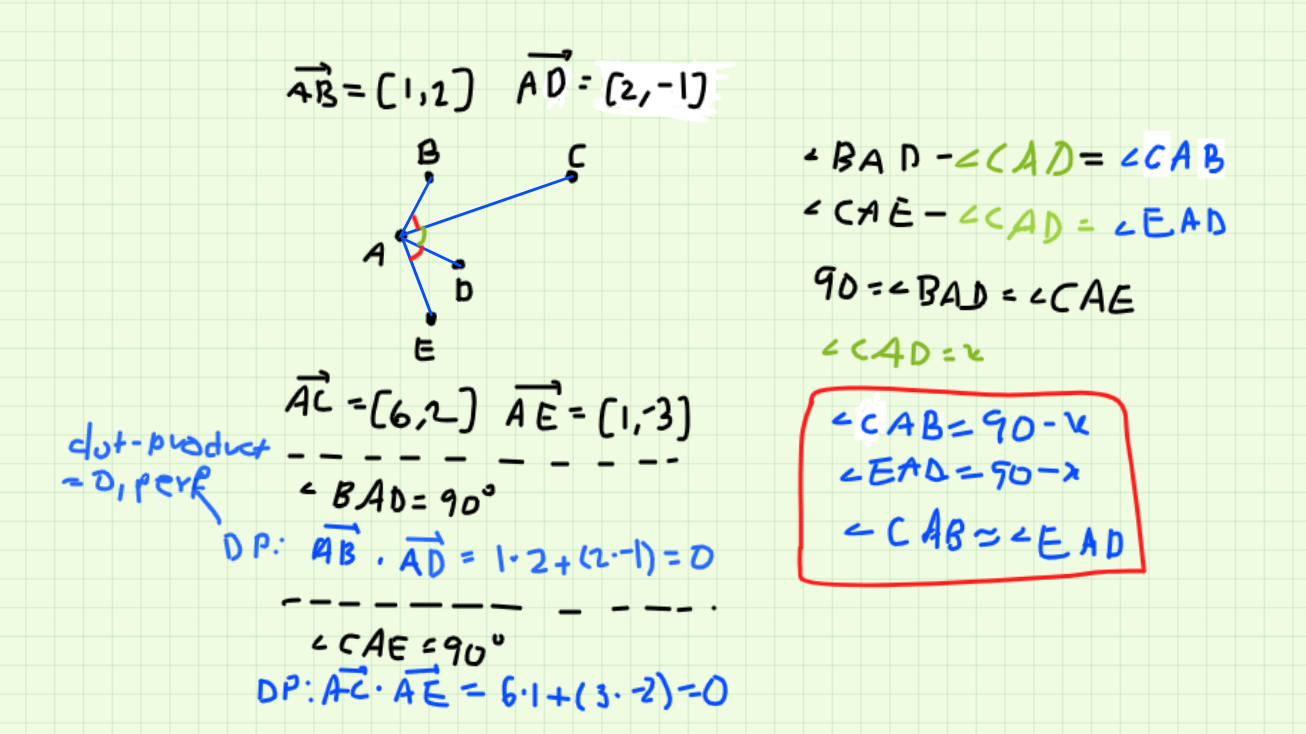 AB = [1,2] AD = [2,-1]
B
C
A
D
E
AC = [6,2] AE = [1,-3]
dot-product
= 0, perf
∠BAD = 90°
DP: AB · AD = 1·2+(2·-1)=0
∠CAE = 90°
DP: AC · AE = 6·1+(3·-2)=0
∠BAD - ∠CAD = ∠CAB
∠CAE - ∠CAD = ∠EAD
90 = ∠BAD = ∠CAE
∠CAD = x
∠CAB = 90-x
∠EAD = 90-x
∠CAB ≈ ∠EAD